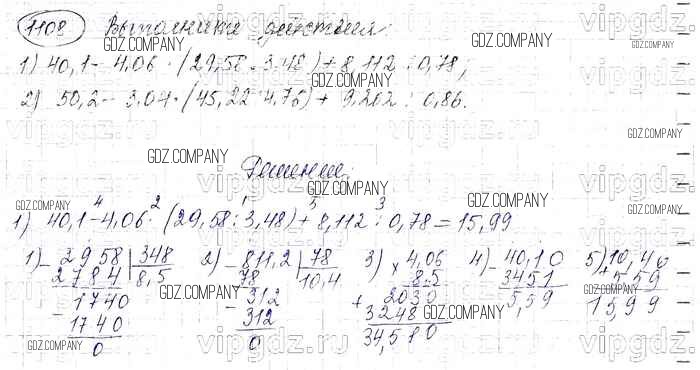 1108 Выполните действия:
1) 40,1 - 4,06 · (29,58 : 3,48) + 8,112 : 0,78;
2) 50,2 - 3,04 · (45,22 : 4,76) + 9,202 : 0,86.
Решение:
4 2 1 5 3
1) 40,1 - 4,06 · (29,58 : 3,48) + 8,112 : 0,78 = 15,99
1) 2958 | 348 2) 811,2 | 78 3) 4,06 4) 40,10 5) 10,40
2784 8,5 78 10,4 × 8,5 - 34,51 + 5,59
1740 312 2030 5,59 15,99
1740 312 + 3248
0 0 34,510
GDZ.COMPANY
vipgdz.ru